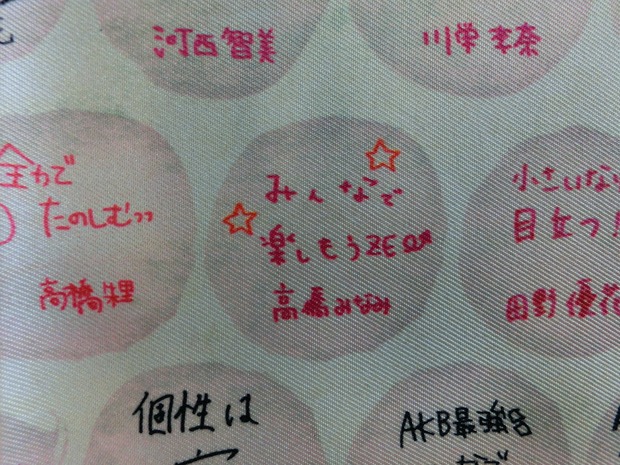 河西智美
川栄李奈
全力で
たのしむっっ
高橋朱里
みんなで
楽しもうZE
高橋みなみ
小さいな
目立つ!
田野優花
個性は
AKB最強